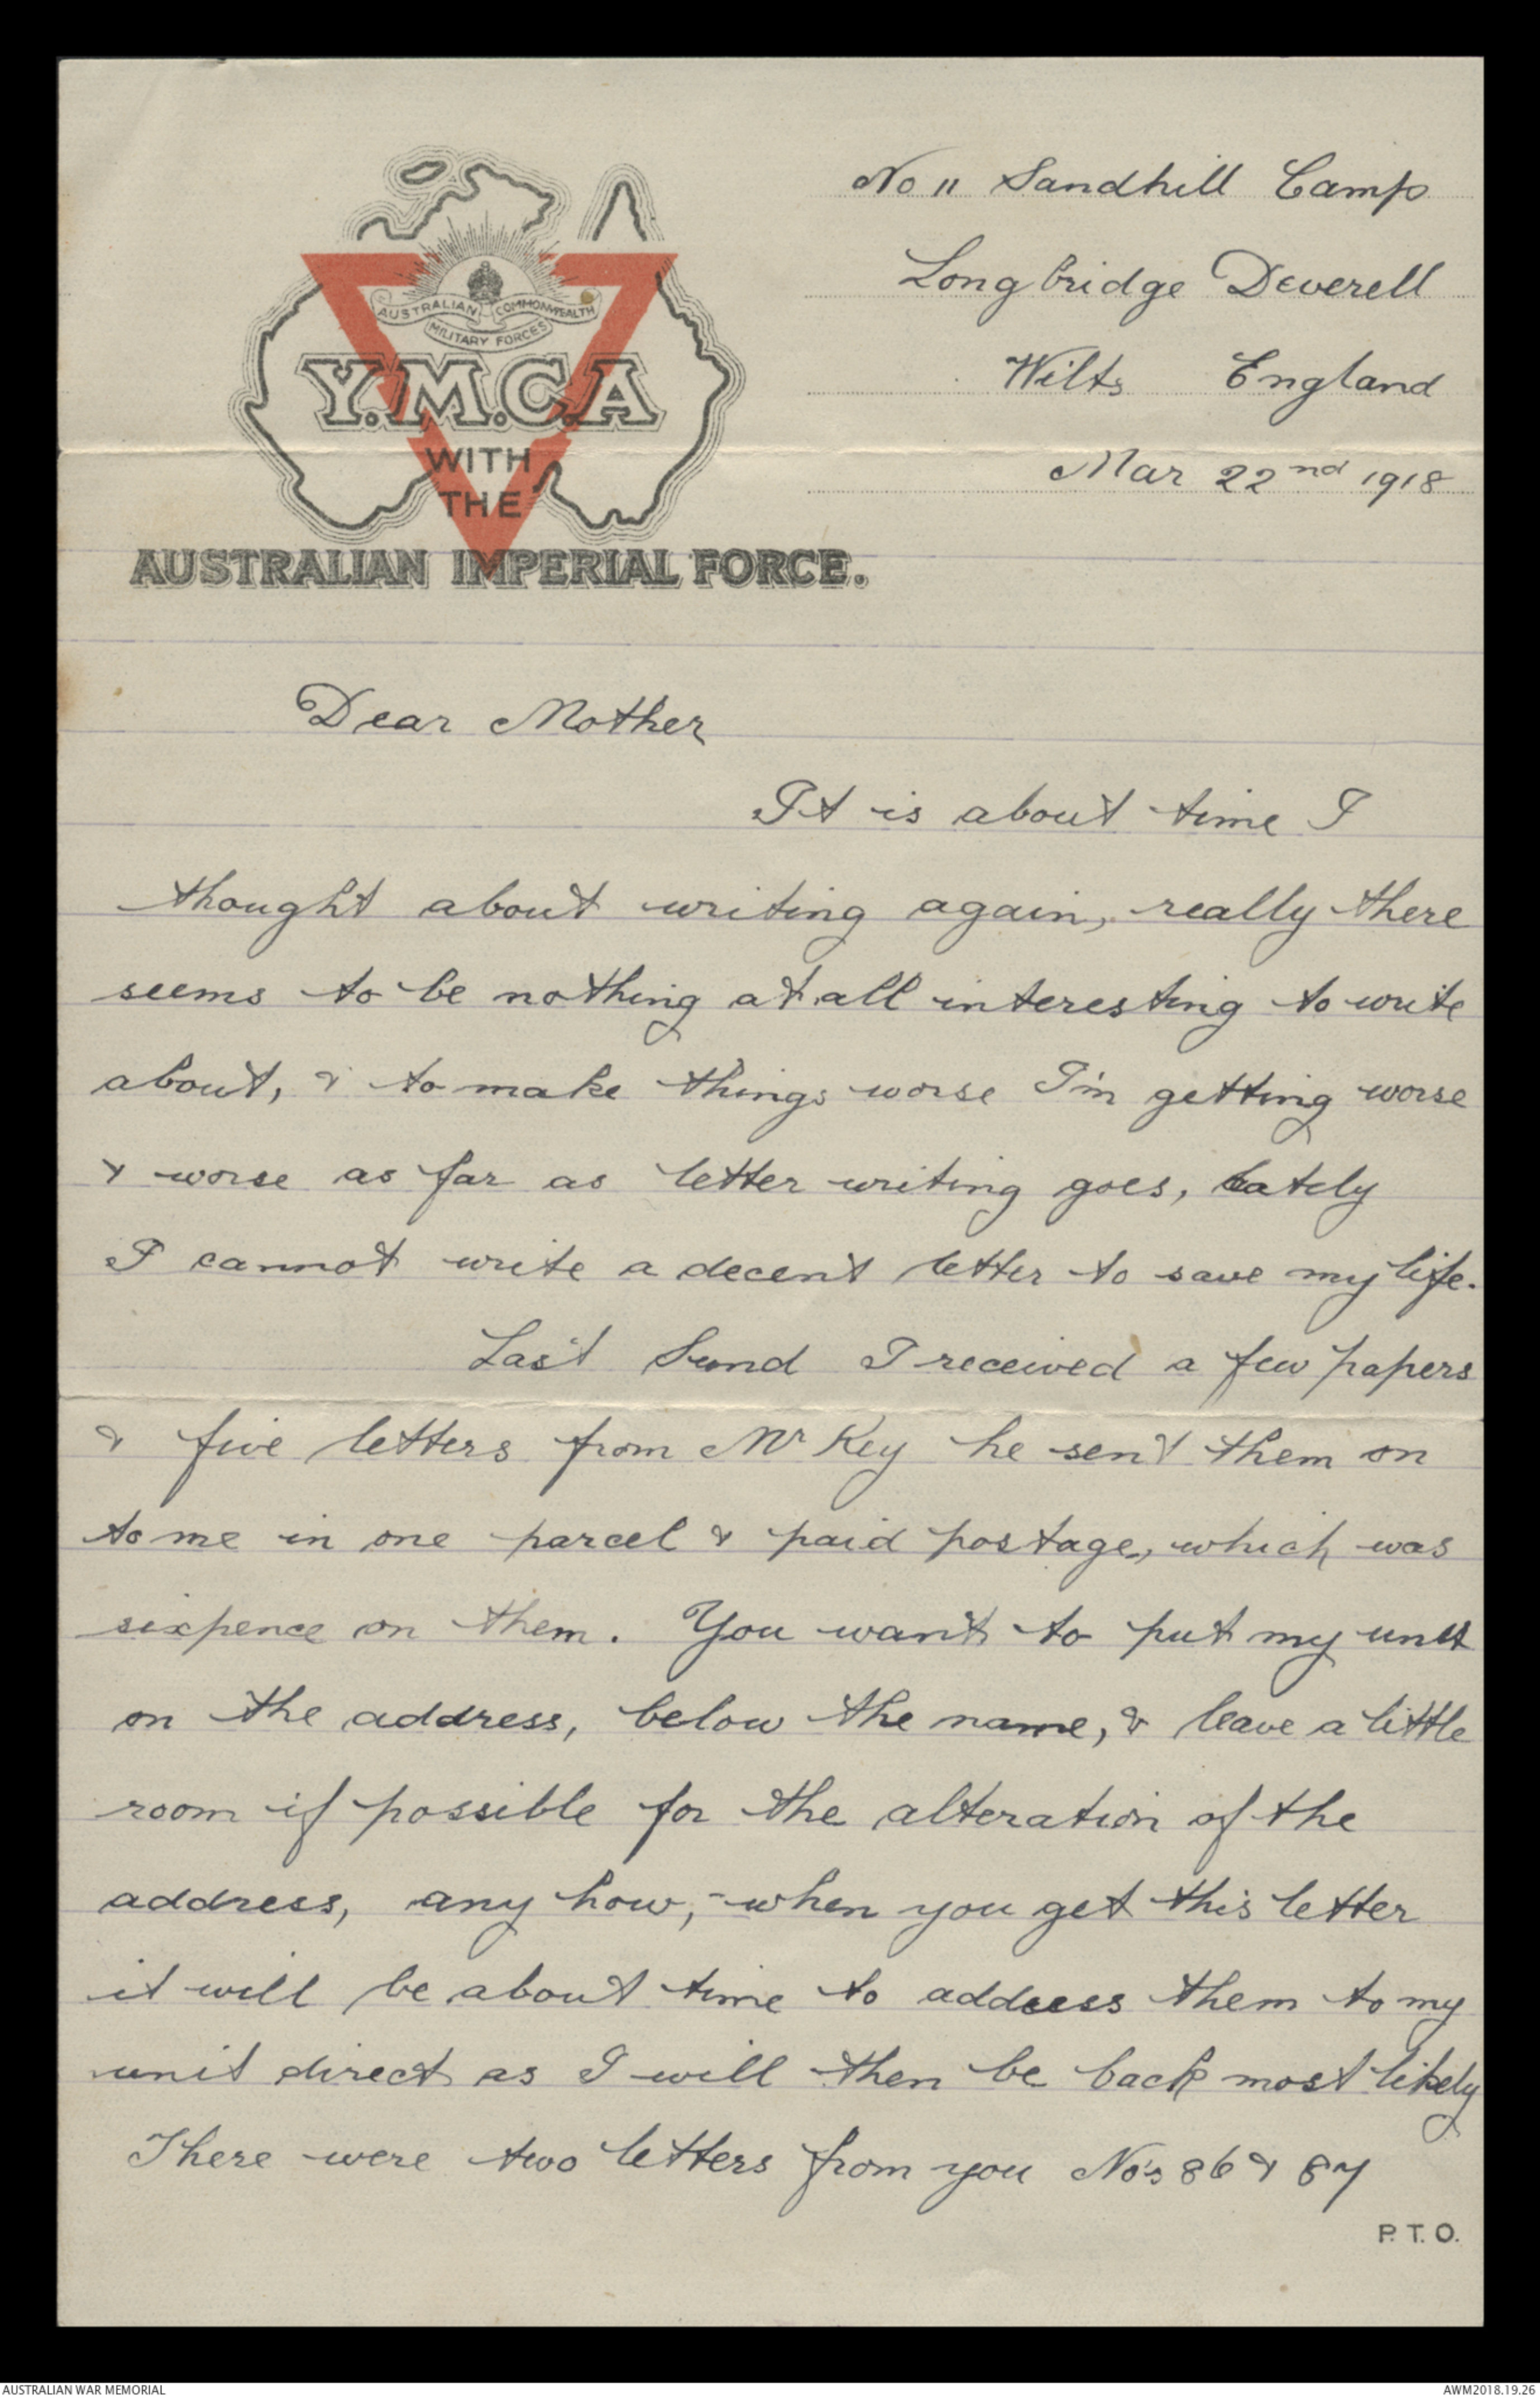 No 11 Sandhill Camp
Longbridge Deverell
Wilts England
Mar 22nd 1918
AUSTRALIAN COMMONWEALTH
MILITARY FORCES
Y.M.C.A
WITH
THE
AUSTRALIAN IMPERIAL FORCE.
Dear Mother
It is about time I
thought about writing again, really there
seems to be nothing at all interesting to write
about, & to make things worse I'm getting worse
& worse as far as letter writing goes, lately
I cannot write a decent letter to save my life.
Last Sund I received a few papers
& five letters from Mr Key he sent them on
to me in one parcel & paid postage, which was
sixpence on them. You want to put my unit
on the address, below the name, & leave a little
room if possible for the alteration of the
address, any how, when you get this letter
it will be about time to address them to my
unit direct as I will then be back most likely
There were two letters from you No's 86 & 87
P.T.O.
AUSTRALIAN WAR MEMORIAL
AWM2018.19.26